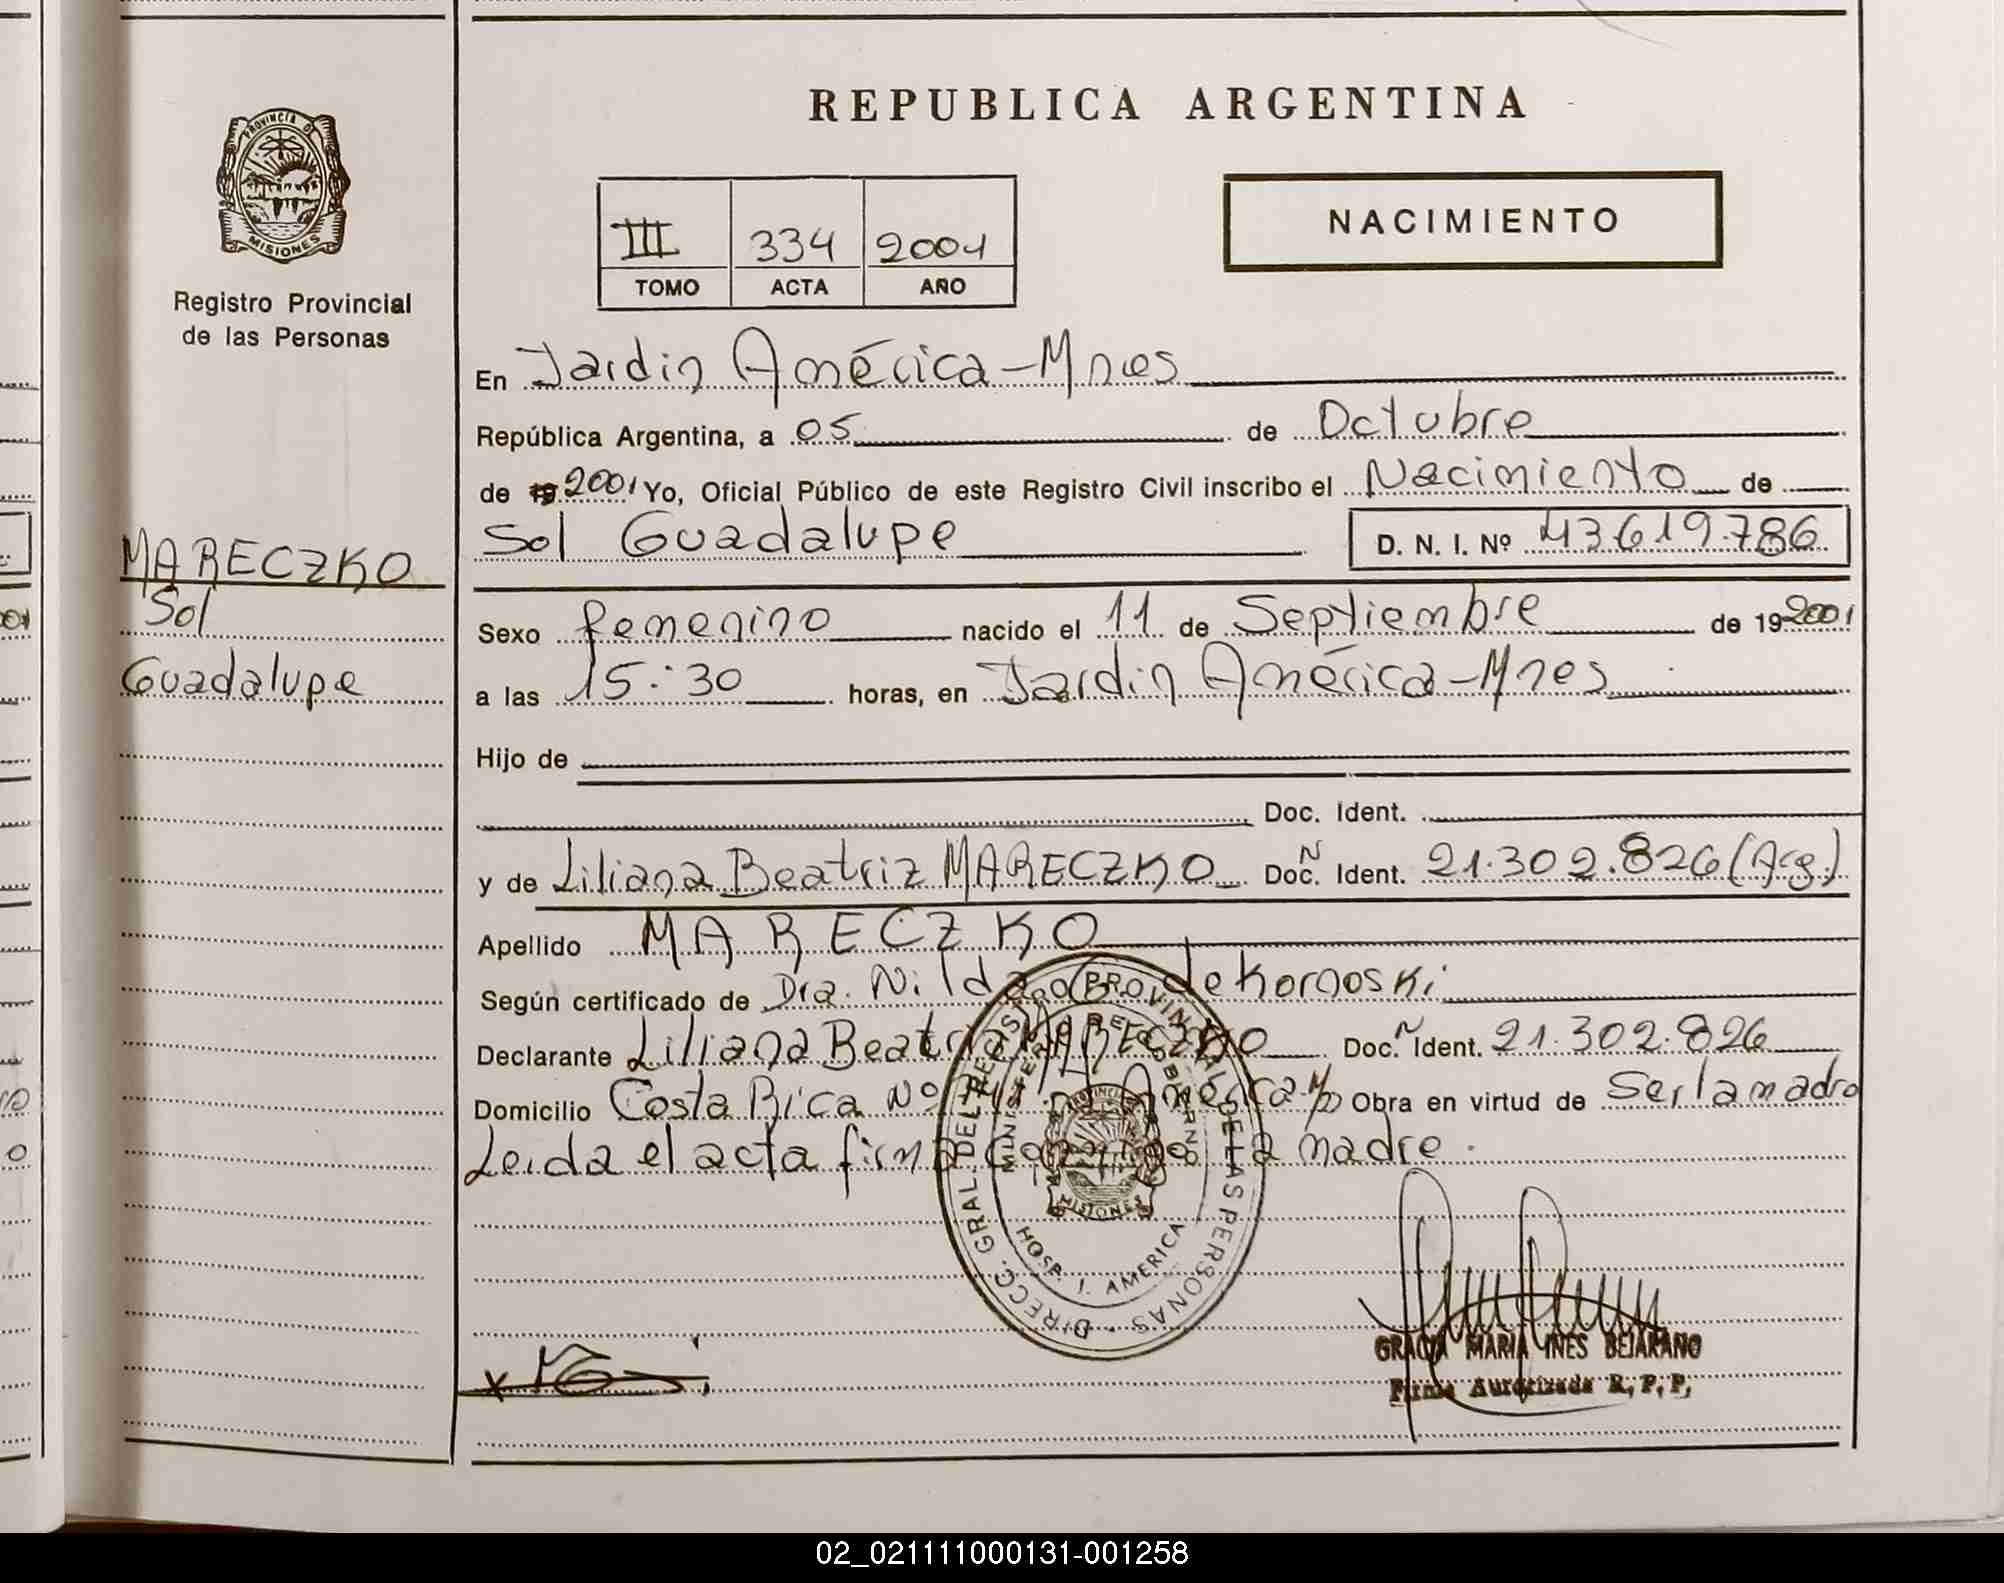 REPUBLICA ARGENTINA
PROVINCIA DE
MISIONES
Registro Provincial
de las Personas
III 334 2001
TOMO ACTA AÑO
NACIMIENTO
MARECZKO
Sol
Guadalupe
En Jardin América-Mnes
República Argentina, a 05 de Octubre
de 19 2001 Yo, Oficial Público de este Registro Civil inscribo el Nacimiento de
Sol Guadalupe D. N. I. Nº 43.619.786
Sexo femenino nacido el 11 de Septiembre de 19 2001
a las 15:30 horas, en Jardin América-Mnes
Hijo de
Doc. Ident.
y de Liliana Beatriz MARECZKO Doc. N Ident. 21.302.826 (Arg.)
Apellido MARECZKO
Según certificado de Dra. Nilda de Kornoski
Declarante Liliana Beatriz MARECZKO Doc. N Ident. 21.302.826
Domicilio Costa Rica Nº América Obra en virtud de Ser la madre
Leida el acta firma la madre.
DIRECC. GRAL. DEL REGISTRO PROVINCIAL DE LAS PERSONAS
MINISTERIO DE GOBIERNO
MISIONES
HOSP. J. AMERICA
GRACIA MARIA INES BEJARANO
Firma Autorizada R, P, P,
02_021111000131-001258